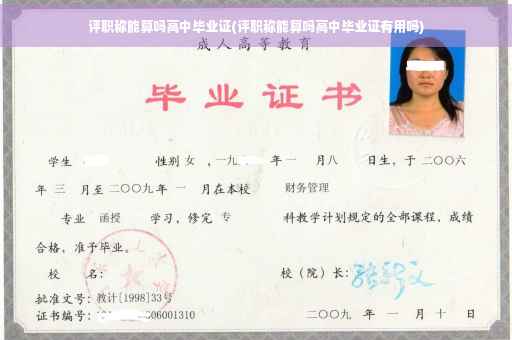 评职称能算吗高中毕业证(评职称能算吗高中毕业证有用吗)
成人高等教育
毕业证书
学生 性别 女 ，一九 年 一 月八 日生，于 二〇〇六
年 三 月至 二〇〇九 年 一 月在本校 财务管理
专业 函授 学习，修完 专 科教学计划规定的全部课程，成绩
合格，准予毕业。
校 名： 校（院）长：
批准文号：教计[1998]33号
证书编号： 06001310 二〇〇九 年 一 月 十 日